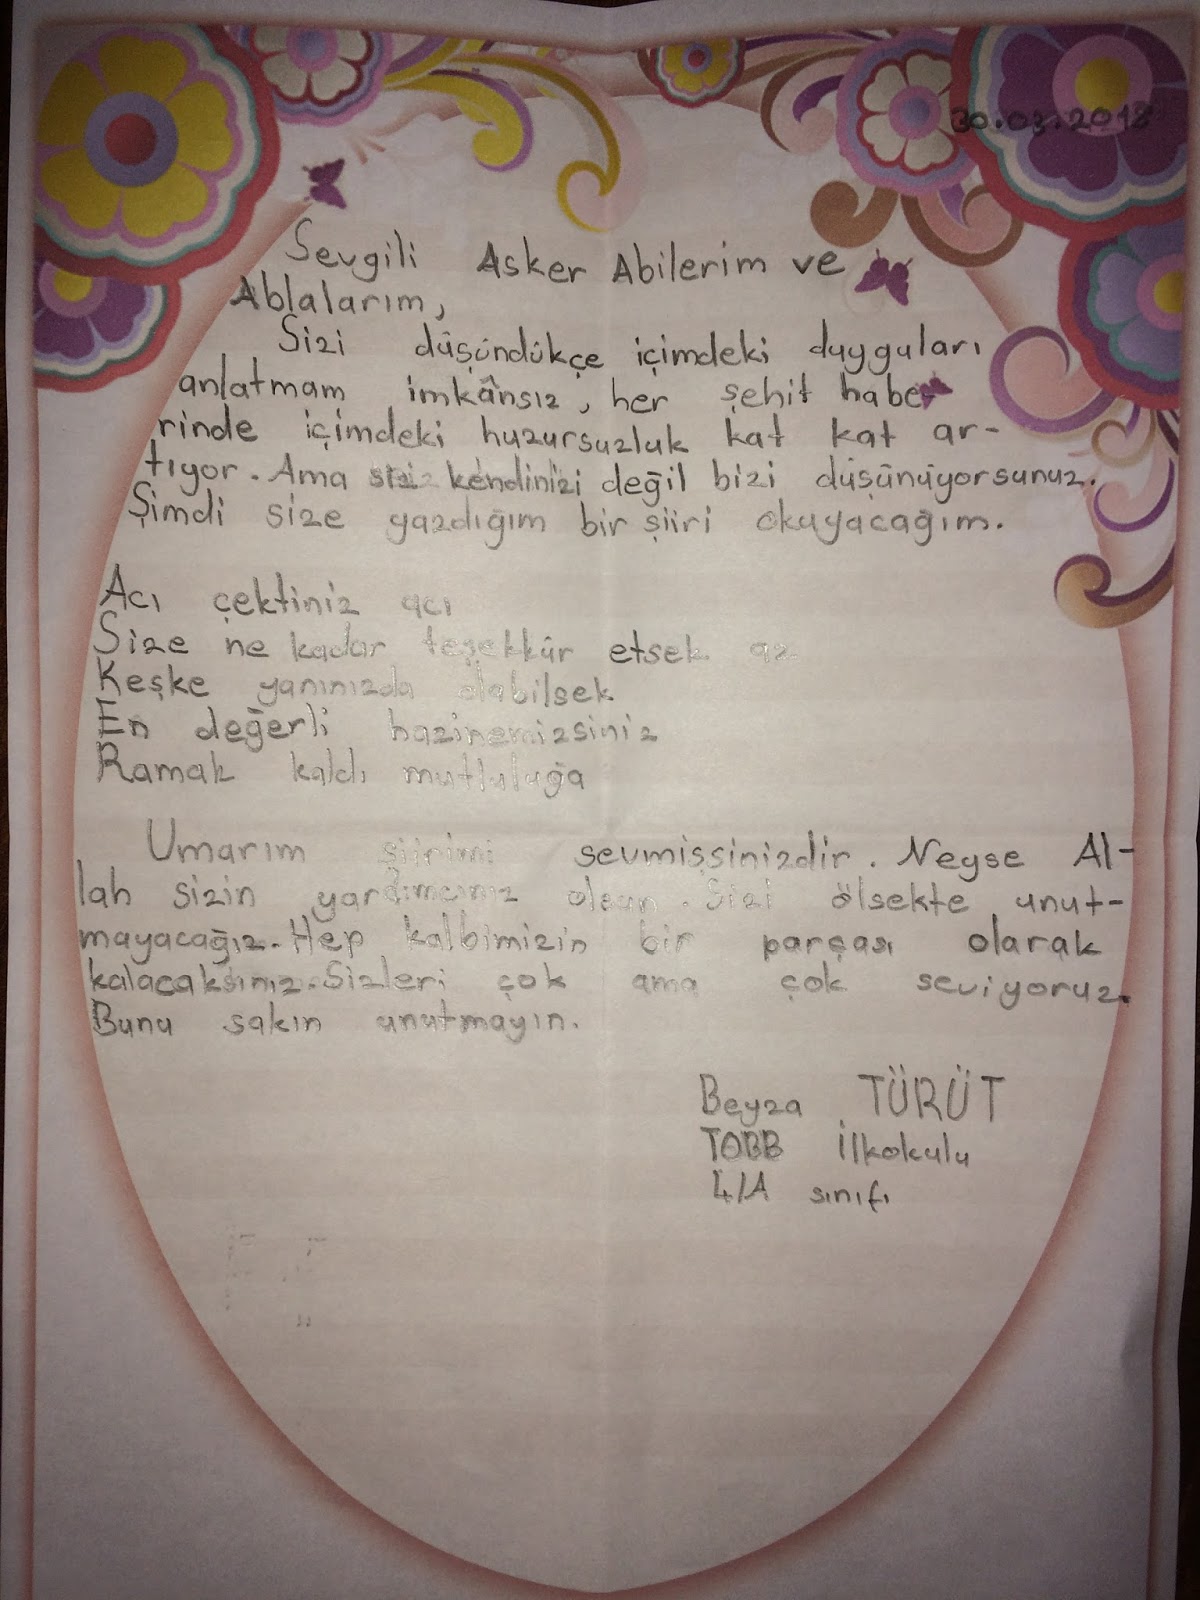 30.03.2018
Sevgili Asker Abilerim ve
Ablalarım,
Sizi düşündükçe içimdeki duyguları
anlatmam imkânsız, her şehit habe-
rinde içimdeki huzursuzluk kat kat ar-
tıyor. Ama siz kendinizi değil bizi düşünüyorsunuz.
Şimdi size yazdığım bir şiiri okuyacağım.
Acı çektiniz acı
Size ne kadar teşekkür etsek az
Keşke yanınızda olabilsek
En değerli hazinemizsiniz
Ramak kaldı mutluluğa
Umarım şiirimi sevmişsinizdir. Neyse Al-
lah sizin yardımcınız olsun. Sizi ölsekte unut-
mayacağız. Hep kalbimizin bir parçası olarak
kalacaksınız. Sizleri çok ama çok seviyoruz.
Bunu sakın unutmayın.
Beyza TÜRÜT
TOBB İlkokulu
4/A sınıfı